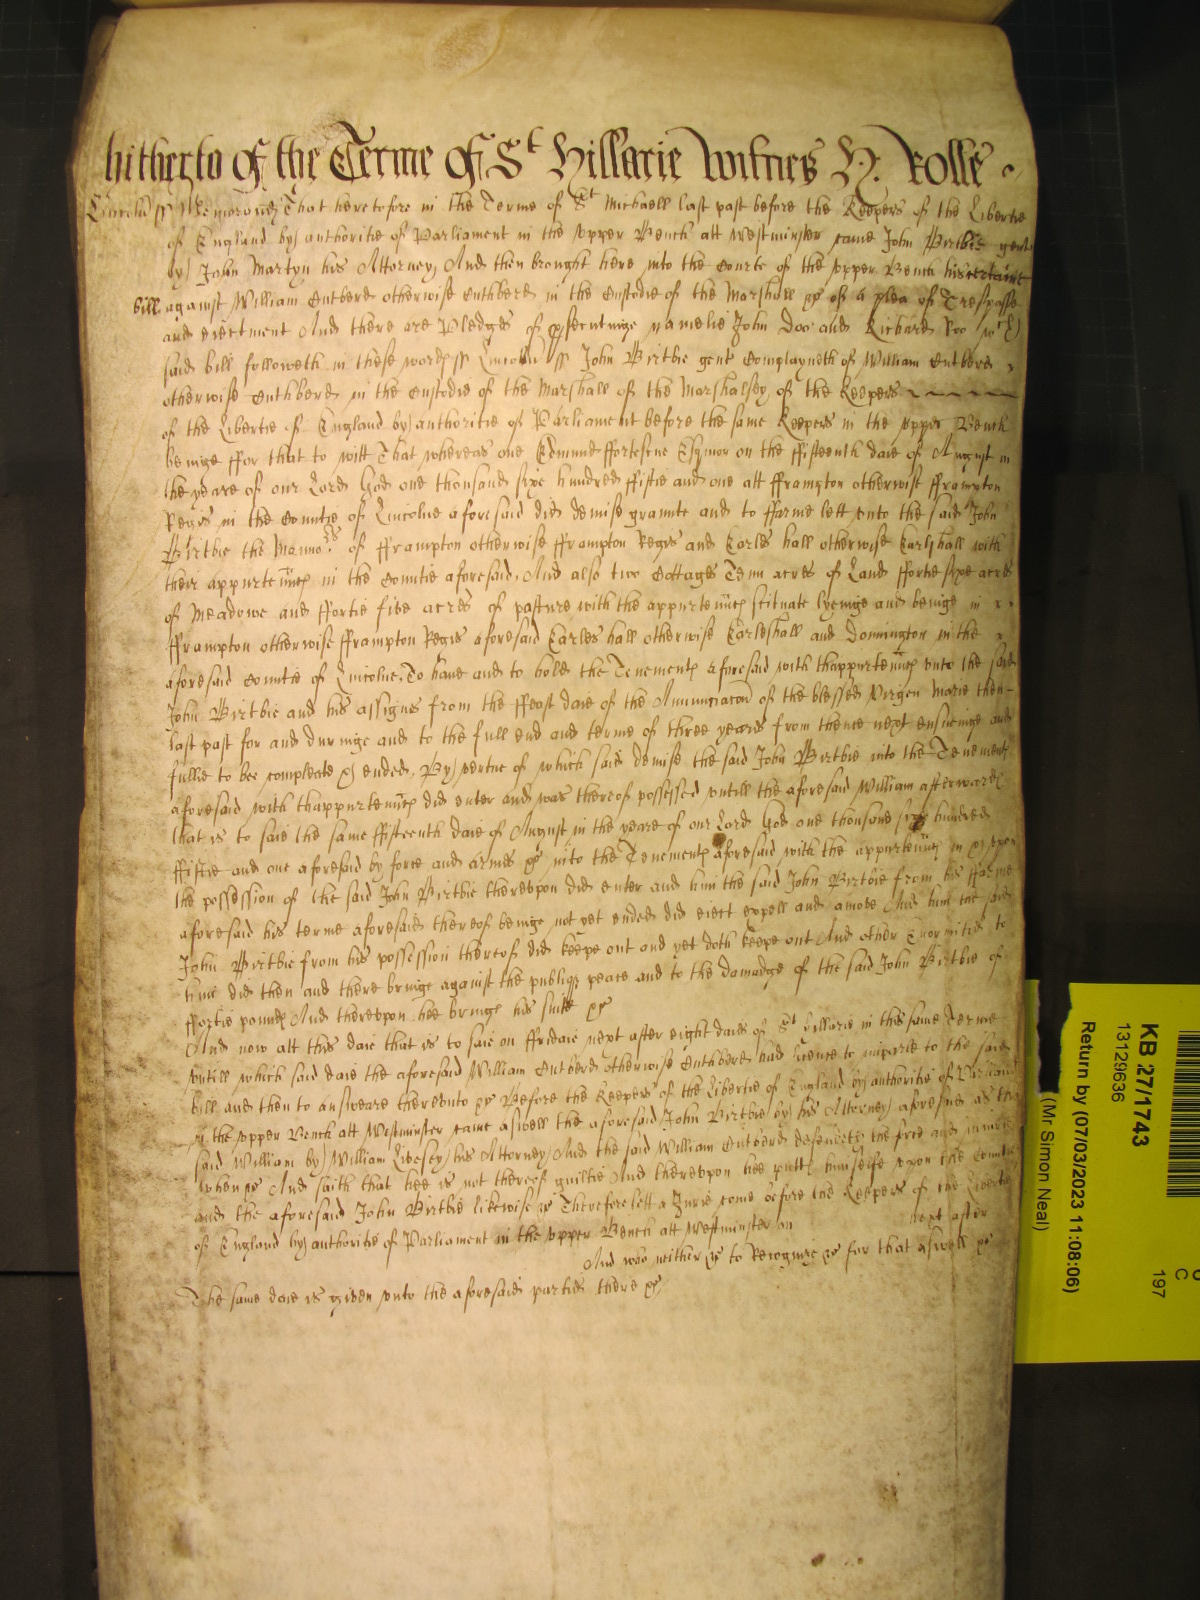 hitherto of the Terme of St Hillarie Witnes H: Rolle
Lincoln ss Memorand That heretofore in the Terme of St Michaell last past before the Keepers of the Libertie
of England by authoritie of Parliament in the vpper Bench att Westminster came John Birtbie gent
by John Martyn his Attorney And then brought here into the Courte of the vpper Bench his certaine
bill against William Cutberd otherwise Cuthberd in the Custodie of the Marshall &c of a plea of Trespasse
and eiectment And there are Pledges of psecutinge namelie John Doo and Richard Roo wch
said bill followeth in these words ss Lincoln ss John Birtbie gent Complayneth of William Cutberd
otherwise Cuthberd in the Custodie of the Marshall of the Marshalsey of the Keepers
of the Libertie of England by authoritie of Parliament before the same Keepers in the vpper Bench
beinge ffor that to witt That whereas one Edmund ffortescue Esquior on the ffifteenth daie of August in
the yeare of our Lord God one thousand sixe hundred ffiftie and one att fframpton otherwise fframpton
Regis in the Countie of Lincolne aforesaid did demise graunte and to ffarme lett vnto the said John
Birtbie the Manno rs of fframpton otherwise fframpton Regis and Earles hall otherwise Earlshall with
their appurtennces in the Countie aforesaid, And also two Cottages Tenn acres of Land ffortie sixe acres
of Meadowe and ffortie five acres of pasture with the appurtennces scituate lyeinge and beinge in
fframpton otherwise fframpton Regis aforesaid Earles hall otherwise Earleshall and Donnington in the
aforesaid Countie of Lincolne, To have and to hold the Tenements aforesaid with thappurtennces vnto the said
John Birtbie and his assignes from the ffeast daie of the Annunciacon of the blessed Virgen Marie then
last past for and duringe and to the full end and terme of three yeares from thence next ensueinge and
fullie to bee compleate & ended, By vertue of which said demise the said John Birtbie into the Tenements
aforesaid with thappurtennces did enter and was thereof possessed vntill the aforesaid William afterwards
that is to saie the same ffifteenth daie of August in the yeare of our Lord God one thousand sixe hundred
ffiftie and one aforesaid by force and armes &c into the Tenements aforesaid with the appurtennces in & vpon
the possession of the said John Birtbie therevpon did enter and him the said John Birtbie from his ffarme
aforesaid his terme aforesaid thereof beinge not yet ended did eiect expell and amove And him the said
John Birtbie from his possession thereof did keepe out and yet doth keepe out And other Enormities to
him did then and there bringe against the publique peace and to the damadge of the said John Birtbie of
ffortie pounds And therevpon hee brings his suite &c
And now att this daie that is to saie on ffridaie next after eight daies of St Hillarie in this same Terme
vntill which said daie the aforesaid William Cutberd otherwise Cuthberd had licence to imparle to the said
bill and then to answeare therevnto &c Before the Keepers of the Libertie of England by authoritie of Parliament
in the vpper Bench att Westminster came aswell the aforesaid John Birtbie by his Attorney aforesaid as the
said William by William Livesey his Attorney And the said William Cutberd defendeth the force and iniurie
when &c And saith that hee is not thereof guiltie And therevpon hee putts himselfe vpon the Countrie
and the aforesaid John Birtbie likewise &c Therefore lett a Jurie come before the Keepers of the Libertie
of England by authoritie of Parliament in the vpper Bench att Westminster on next after
And who neither &c to Recognize &c for that aswell &c
The same daie is given vnto the aforesaid parties there &c
KB 27/1743
13129636
Return by (07/03/2023 11:08:06)
(Mr Simon Neal)
197
C